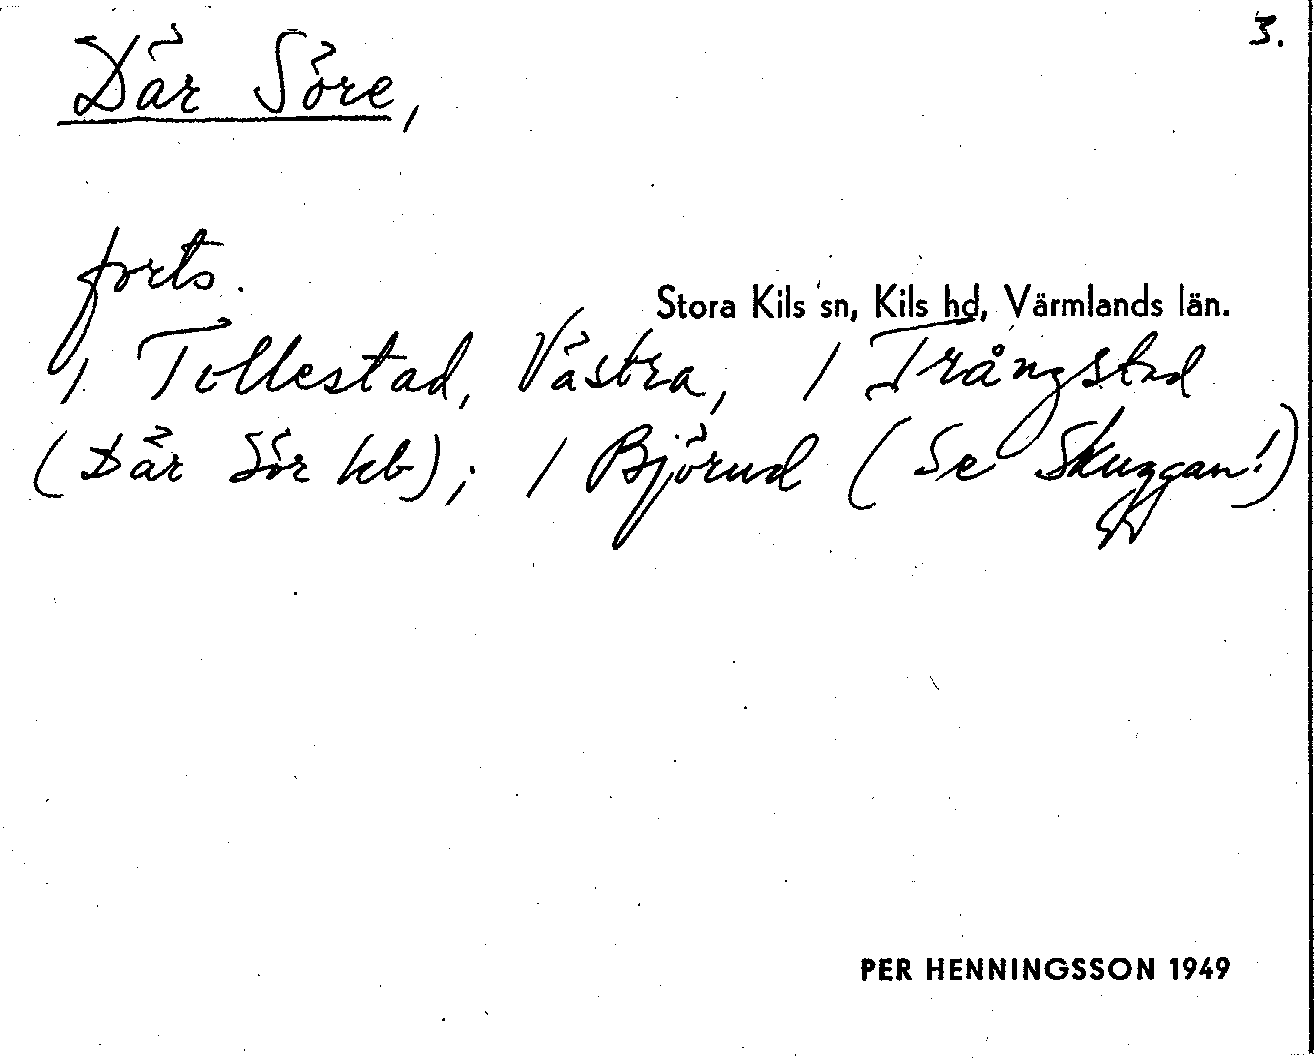 3.
Där Söre,
forts.
Stora Kils sn, Kils hd, Värmlands län.
1 Tollestad, Västra, 1 Trångstad
(Där Sör kb); 1 Björud (Se Skuggan!)
PER HENNINGSSON 1949